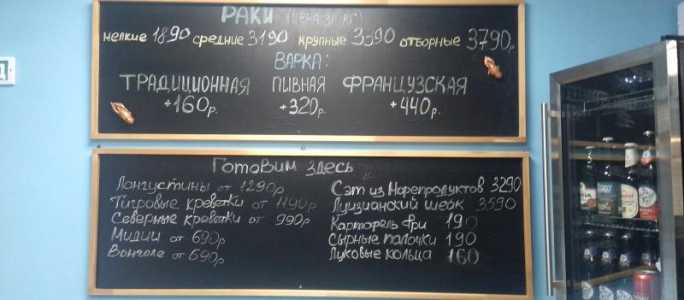 РАКИ
мелкие 1890 средние 3190 крупные 3590 отборные 3790р
ВАРКА:
ТРАДИЦИОННАЯ ПИВНАЯ ФРАНЦУЗСКАЯ
+160р. +320р. +440р.
Готовим здесь
Лангустины от 1290р
Тигровые креветки от 1140р
Северные креветки от 990р
Мидии от 690р
Вонголе от 690р
Сэт из Морепродуктов 3290
Луизианский шейк 3590
Картофель фри 190
Сырные палочки 190
Луковые кольца 160